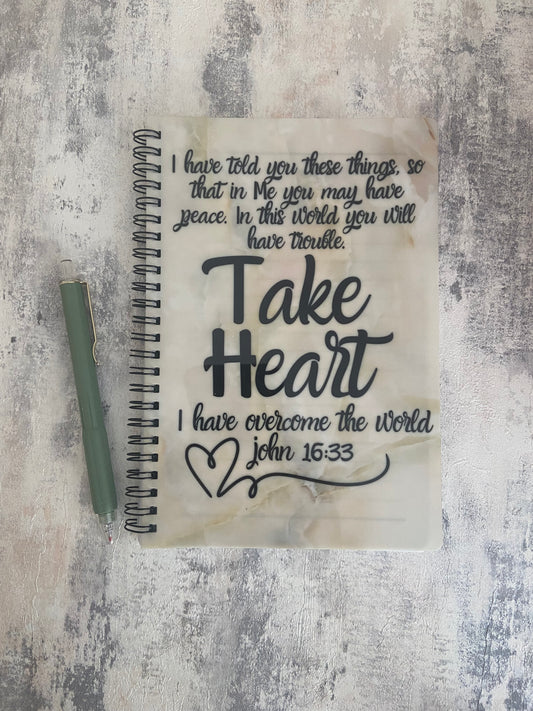 I have told you these things, so
that in Me you may have
peace. In this world you will
have trouble.
Take
Heart
I have overcome the world
john 16:33